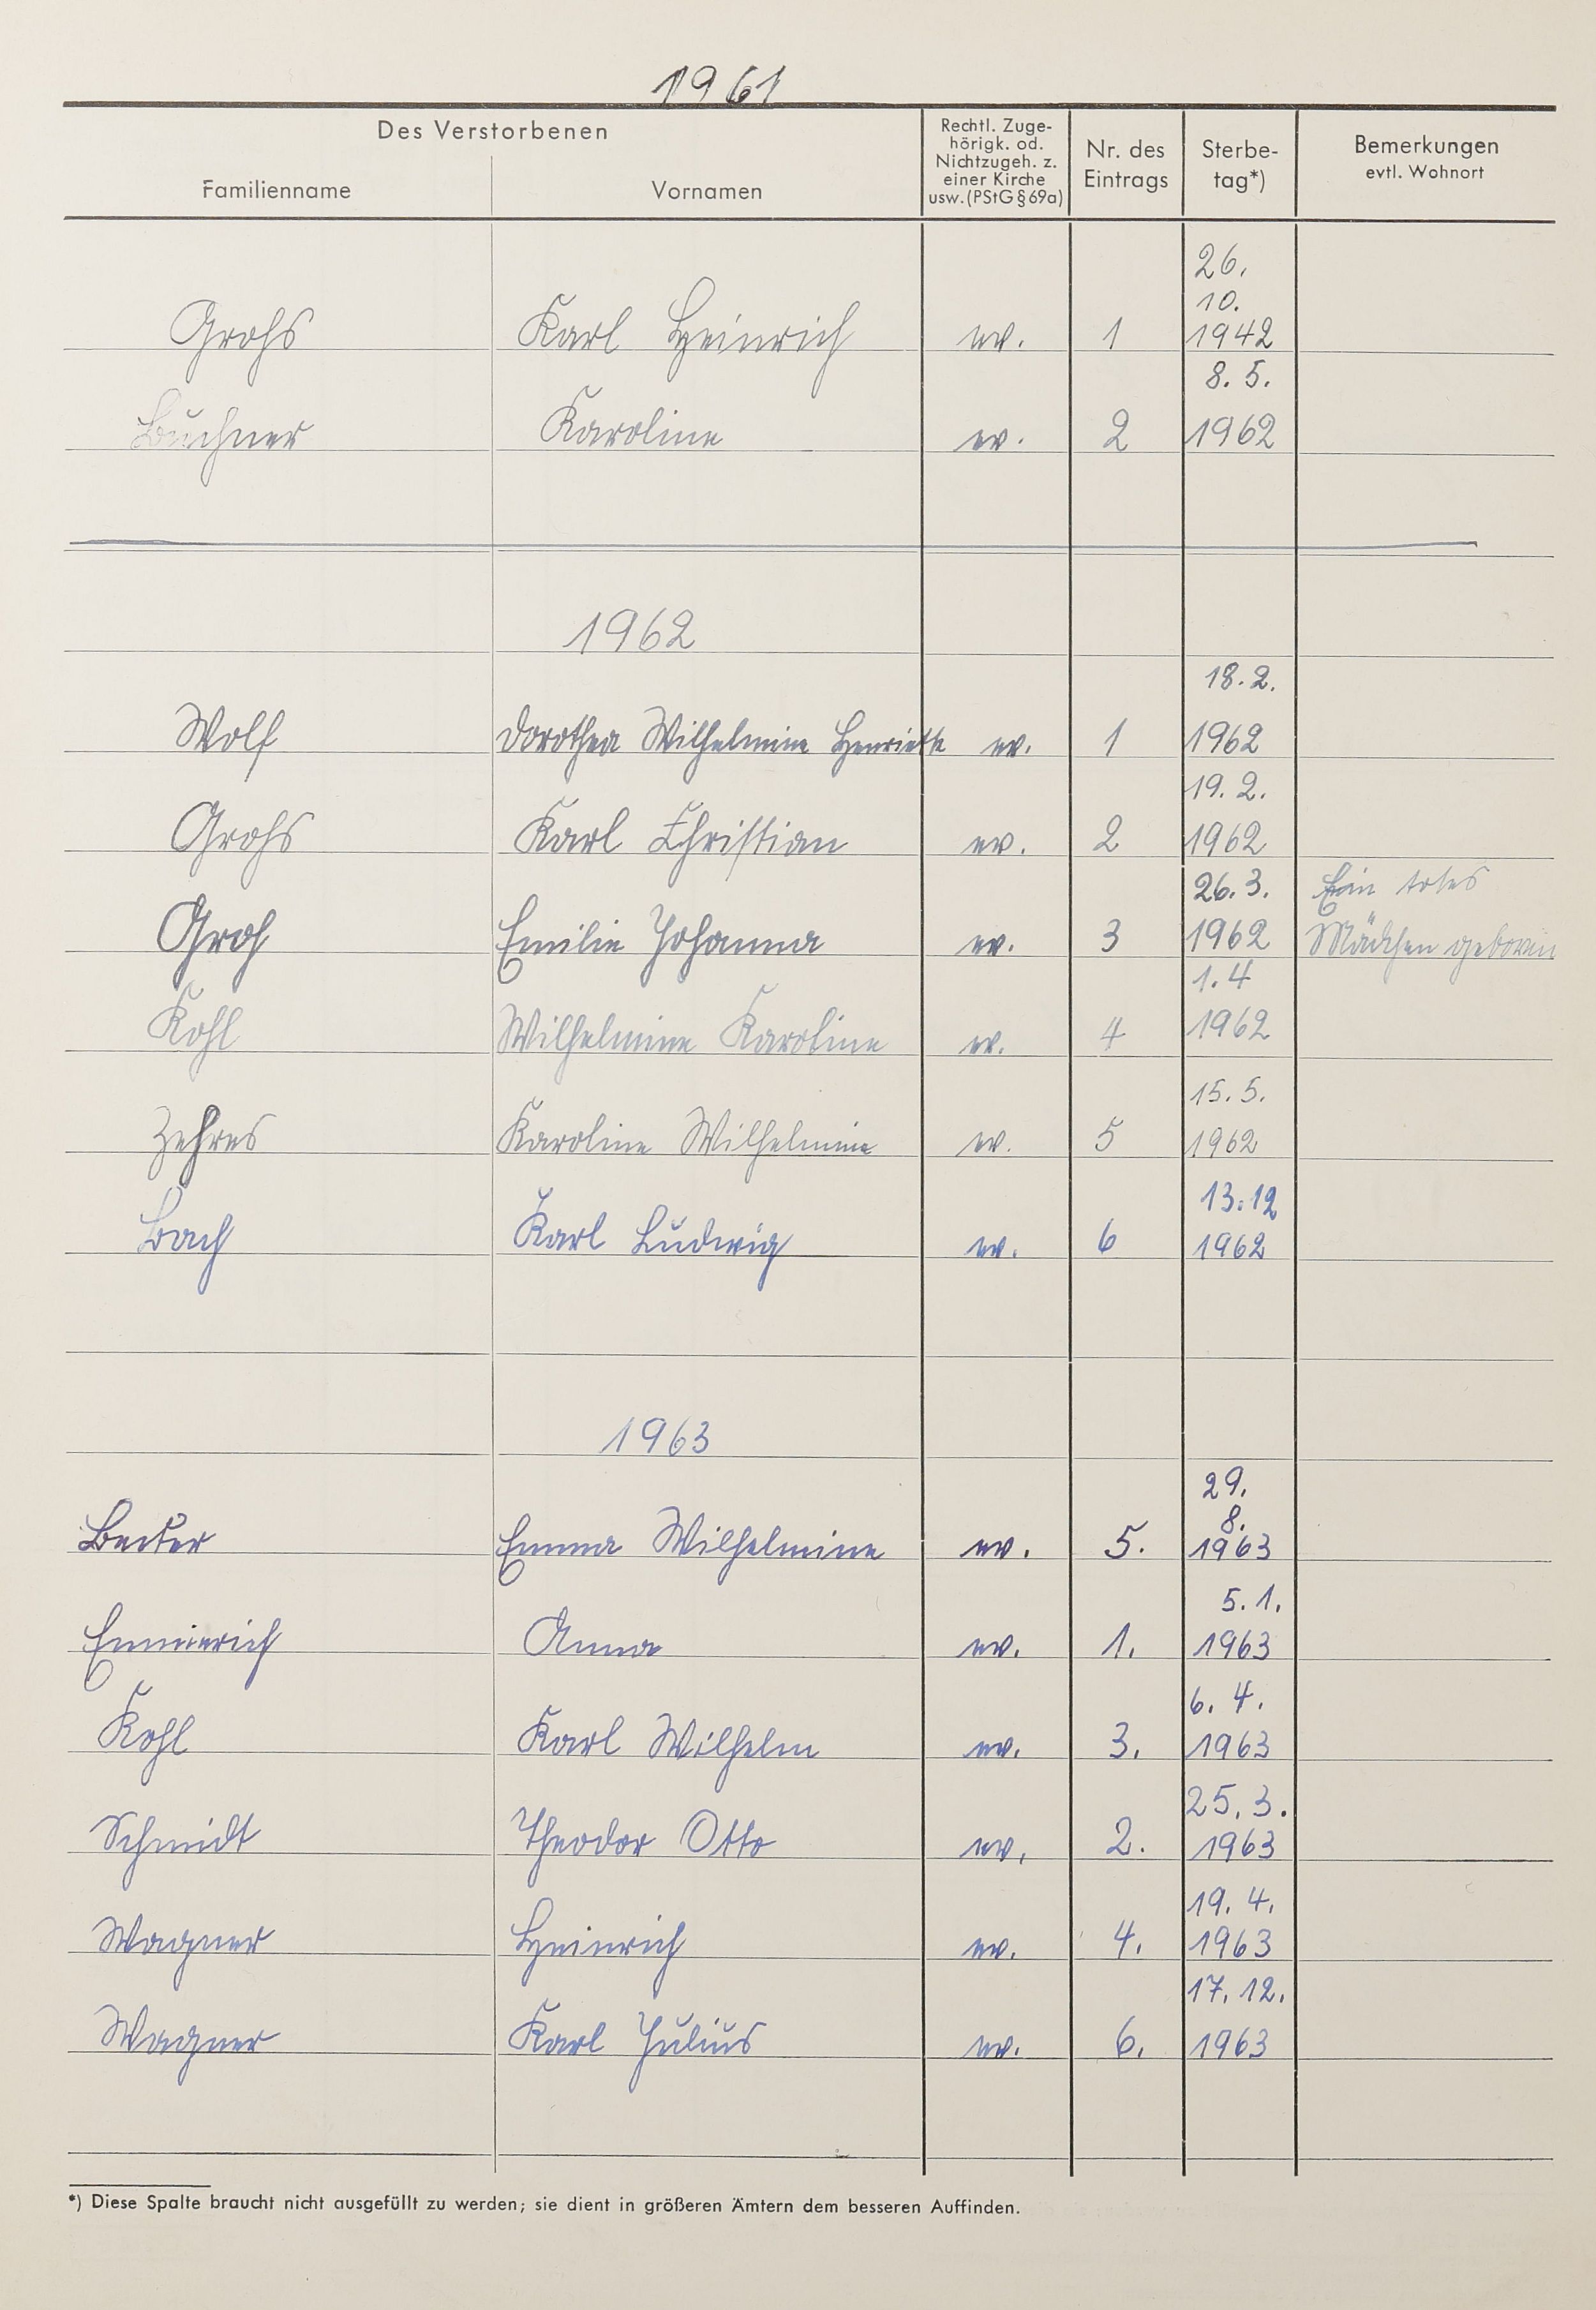 1961
Des Verstorbenen
Familienname
Vornamen
Rechtl. Zuge-
hörigk. od.
Nichtzugeh. z.
einer Kirche
usw. (PStG § 69a)
Nr. des
Eintrags
Sterbe-
tag*)
Bemerkungen
evtl. Wohnort
26.
10.
Grohs Karl Heinrich ev. 1 1942
8. 5.
Buchner Karoline ev. 2 1962
1962
18. 2.
Wolf Dorothea Wilhelmine Henriette ev. 1 1962
19. 2.
Grohs Karl Christian ev. 2 1962
26. 3. Ein totes
Groh Emilie Johanna ev. 3 1962 Mädchen geboren
1. 4
Kohl Wilhelmine Karoline ev. 4 1962
15. 5.
Zehres Karoline Wilhelmine ev. 5 1962
13. 12
Bach Karl Ludwig ev. 6 1962
1963
29.
8.
Becker Emma Wilhelmine ev. 5. 1963
5. 1.
Emmerich Anna ev. 1. 1963
6. 4.
Kohl Karl Wilhelm ev. 3. 1963
25. 3.
Schmidt Theodor Otto ev. 2. 1963
19. 4.
Wagner Heinrich ev. 4. 1963
17. 12.
Wagner Karl Julius ev. 6. 1963
*) Diese Spalte braucht nicht ausgefüllt zu werden; sie dient in größeren Ämtern dem besseren Auffinden.